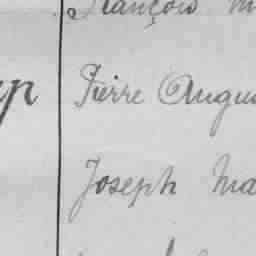 François
Pierre Augu
Joseph Ma